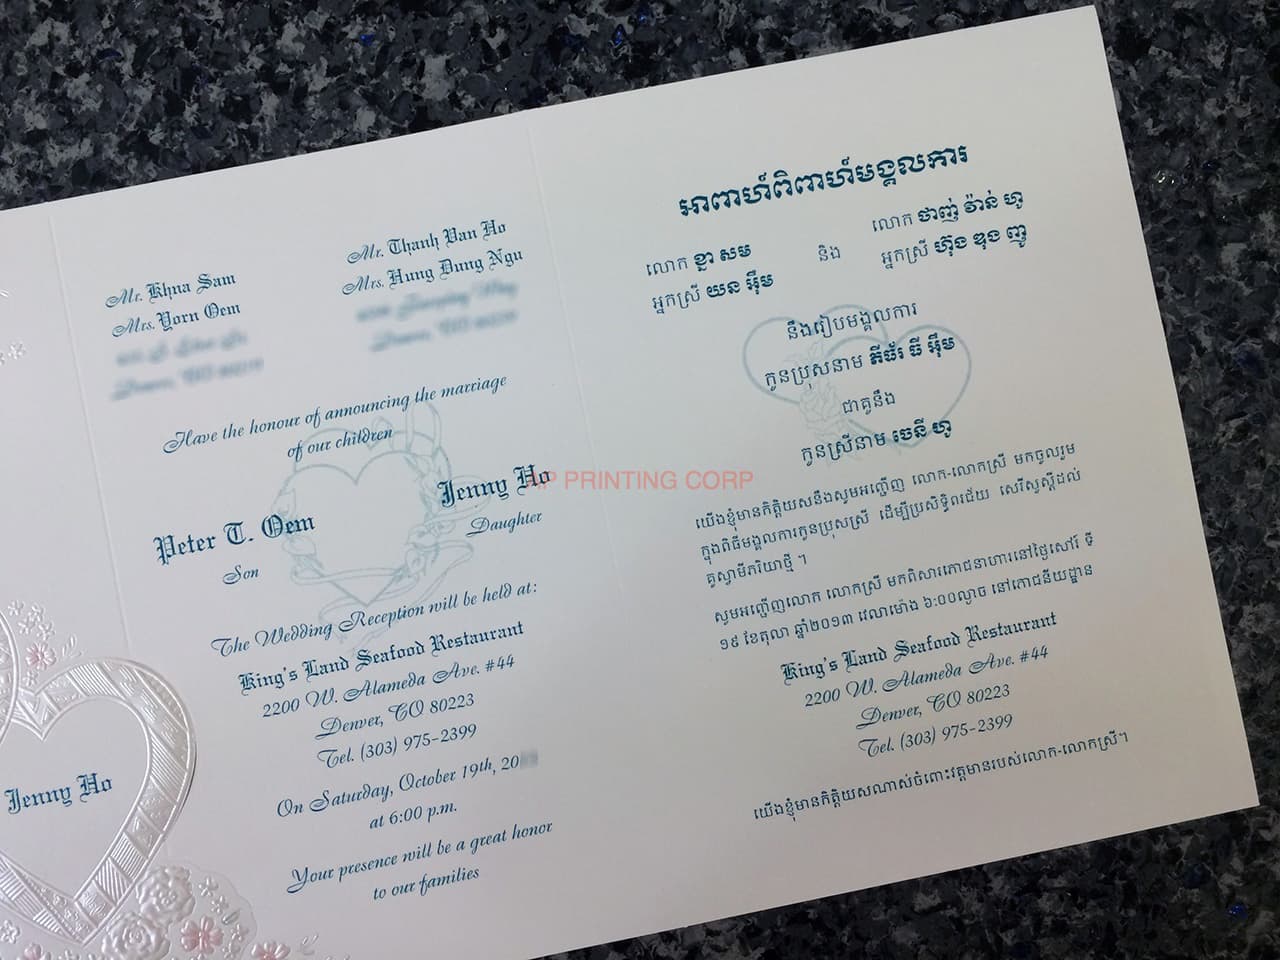 Jenny Ho
Mr. Khna Sam
Mrs. Yorn Oem
Mr. Thanh Van Ho
Mrs. Hung Dung Ngu
Have the honour of announcing the marriage
of our children
Peter T. Oem
Son
Jenny Ho
Daughter
The Wedding Reception will be held at:
King's Land Seafood Restaurant
2200 W. Alameda Ave. #44
Denver, CO 80223
Tel. (303) 975-2399
On Saturday, October 19th, 20
at 6:00 p.m.
Your presence will be a great honor
to our families
អាពាហ៍ពិពាហ៍មង្គលការ
លោក ខ្នា សម
អ្នកស្រី យន អ៊ឹម
និង
លោក ថាញ់ វ៉ាន់ ហូ
អ្នកស្រី ហ៊ុង ឌុង ញូ
នឹងរៀបមង្គលការ
កូនប្រុសនាម ភីធ័រ ធី អ៊ឹម
ជាគូនឹង
កូនស្រីនាម ចេនី ហូ
យើងខ្ញុំមានកិត្តិយសនឹងសូមអញ្ជើញ លោក-លោកស្រី មកចូលរួម
ក្នុងពិធីមង្គលការកូនប្រុសស្រី ដើម្បីប្រសិទ្ធិពរជ័យ សេរីសួស្តីដល់
គូស្វាមីភរិយាថ្មី ។
សូមអញ្ជើញលោក លោកស្រី មកពិសារភោជនាហារនៅថ្ងៃសៅរ៍ ទី
១៩ ខែតុលា ឆ្នាំ២០១៣ វេលាម៉ោង ៦:០០ល្ងាច នៅភោជនីយដ្ឋាន
King's Land Seafood Restaurant
2200 W. Alameda Ave. #44
Denver, CO 80223
Tel. (303) 975-2399
យើងខ្ញុំមានកិត្តិយសណាស់ចំពោះវត្តមានរបស់លោក-លោកស្រី។
PRINTING CORP